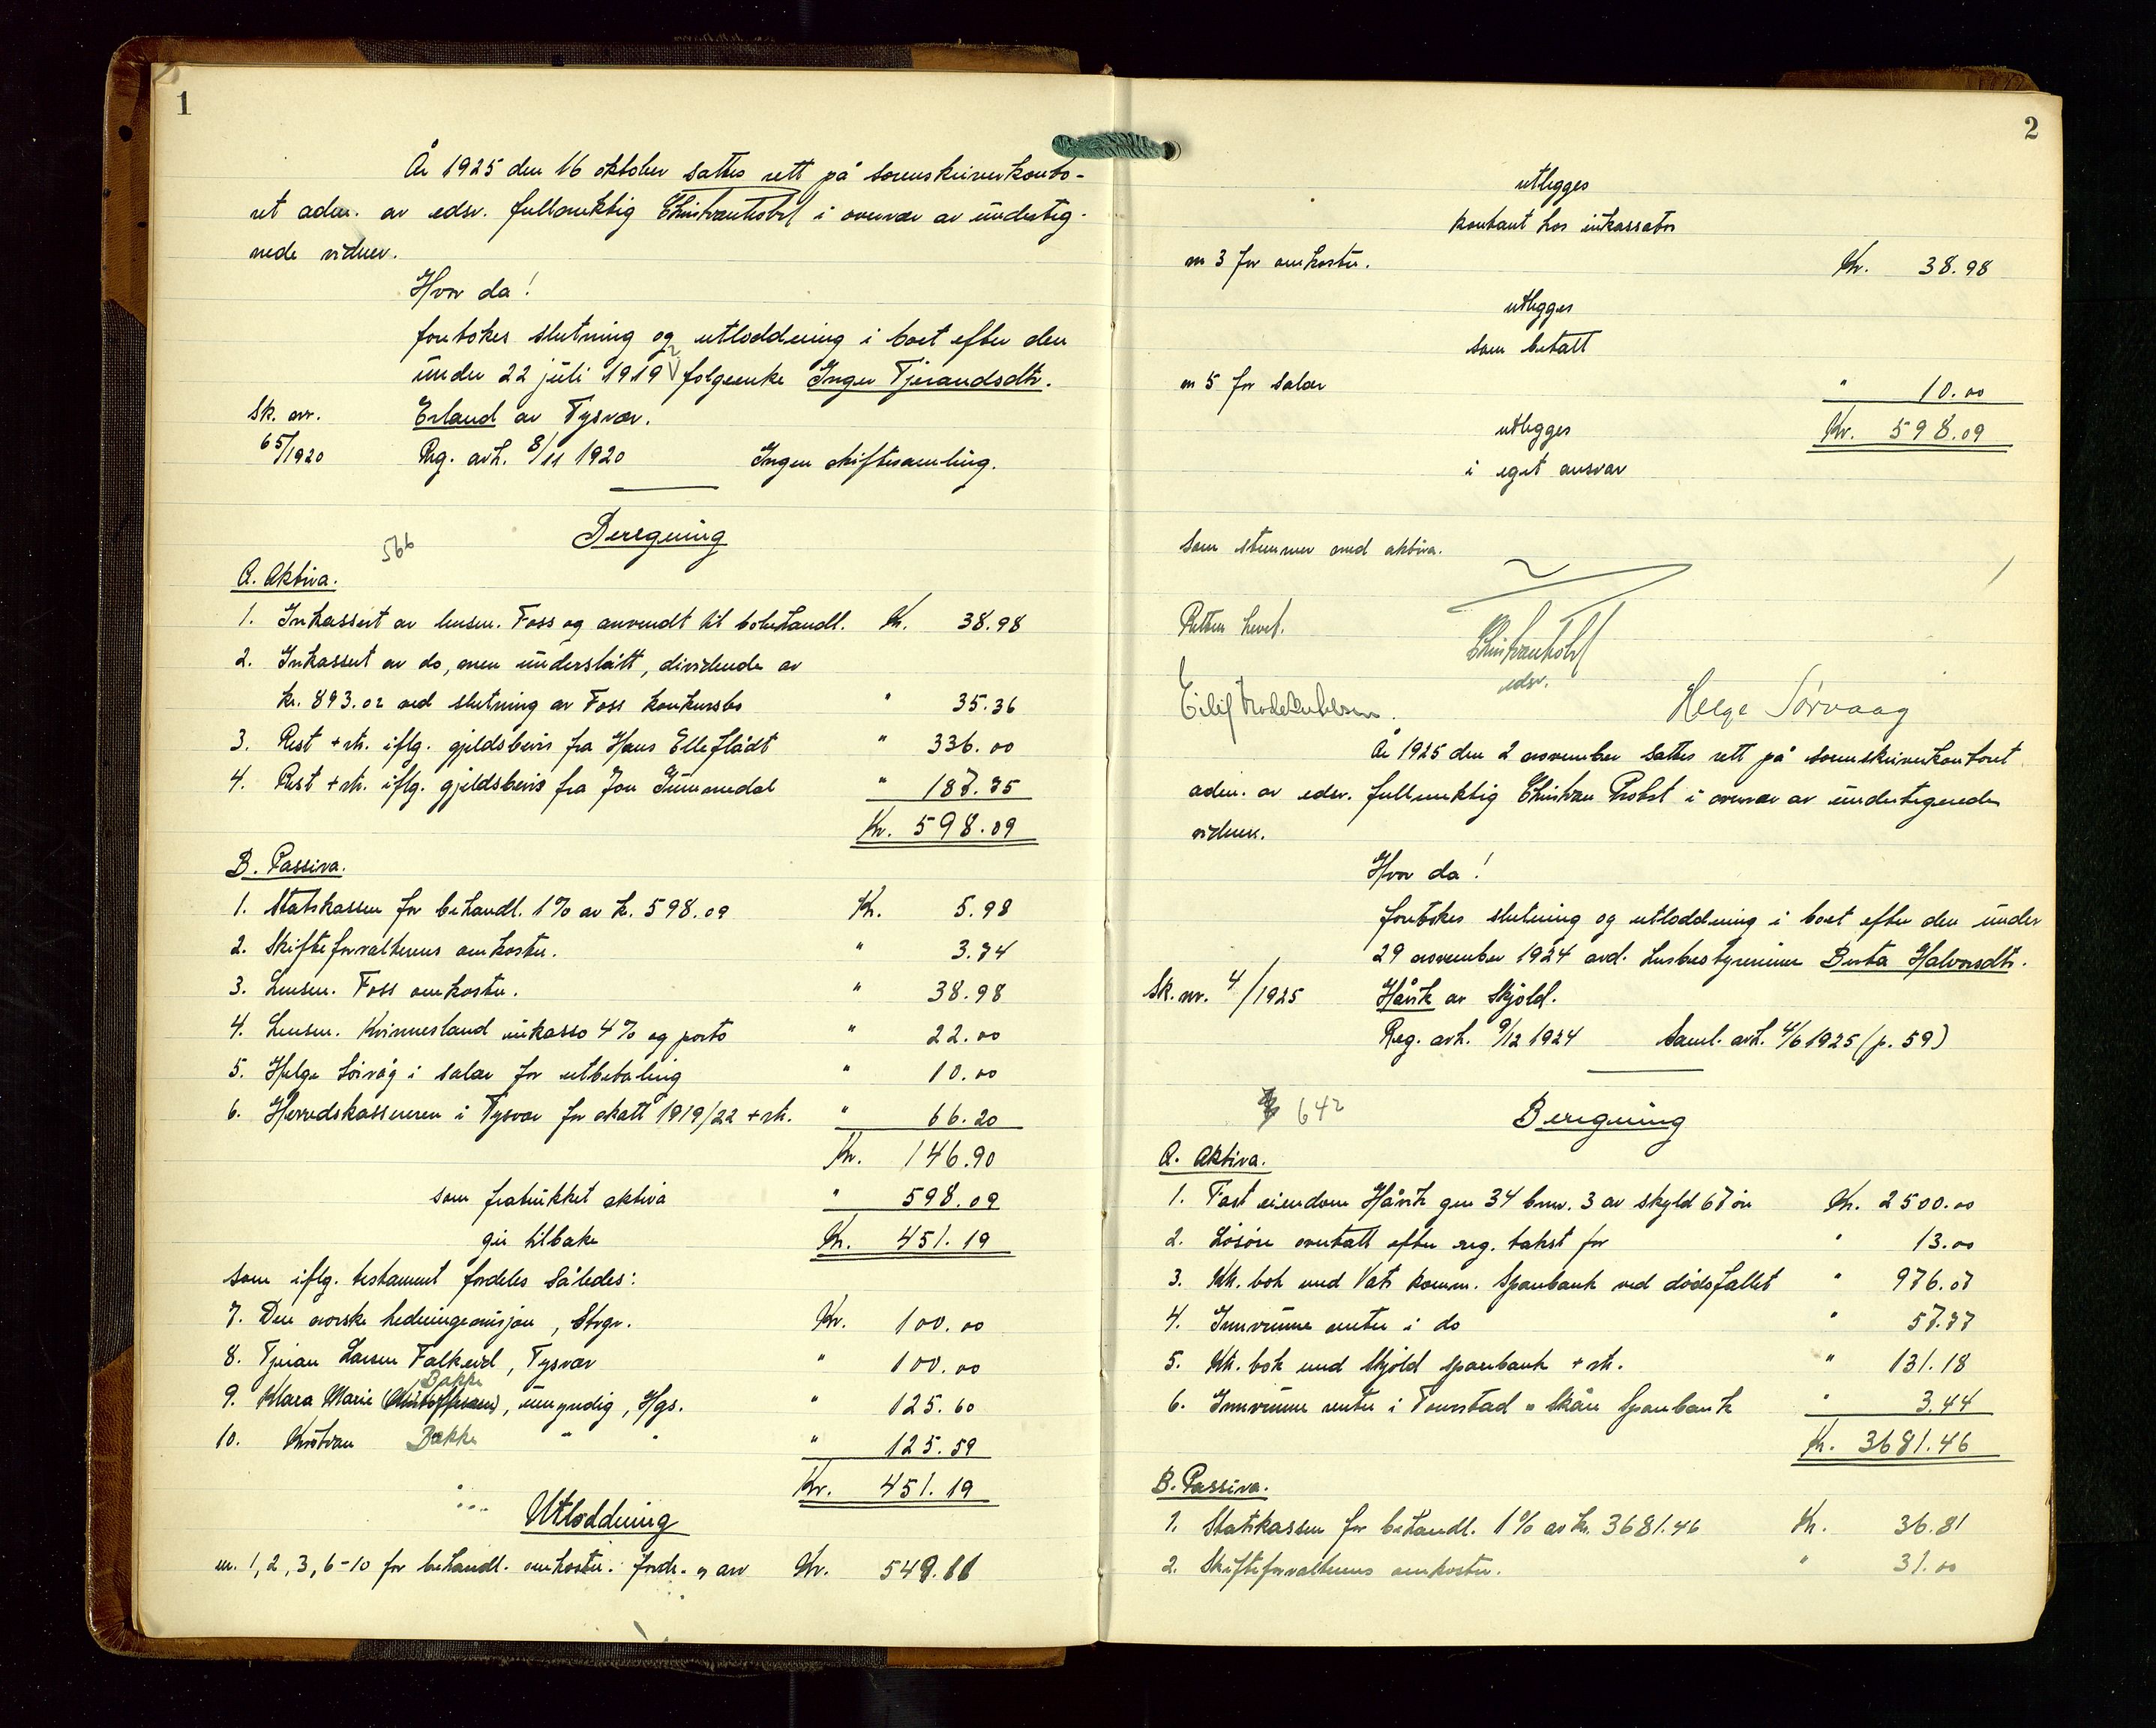 1
År 1925 den 16 oktober sattes rett på sorenskriverkonto-
ret adm. av edsv. fullmektig Christian Probst i overvær av underteg-
nede vidner.
Hvor da!
foretokes slutning og utloddning i boet efter den
under 22 juli 1919 folgeenke Inger Tjerandsdtr.
Sk. nr. Erland av Tysvær.
65/1920 Reg. avh. 8/11 1920 Ingen skiftesamling.
Beregning
566
A. Aktiva.
1. Inkassert av lensm. Foss og anvendt til bobehandl. Kr. 38.98
2. Inkassert av do, men underslått, dividende av
kr. 893.02 ved slutning av Foss konkursbo " 35.36
3. Rest + rtr. iflg. gjeldsbevis fra Hans Elleflådt " 336.00
4. Rest + rtr. iflg. gjeldsbevis fra Jon Gummedal " 187.75
Kr. 598.09
B. Passiva.
1. Statskassen for behandl. 1% av kr. 598.09 Kr. 5.98
2. Skifteforvalterens omkostn. " 3.74
3. Lensm. Foss omkostn. " 38.98
4. Lensm. Kvinnesland inkasso 4% og porto " 22.00
5. Helge Sörvåg i salær for utbetaling " 10.00
6. Herredskassereren i Tysvær for skatt 1919/22 + rtr. " 66.20
Kr. 146.90
som fratrukket aktiva " 598.09
gir tilbake Kr. 451.19
som iflg. testament fordeles således:
7. Den norske hedningemisjon, Stvgr. Kr. 100.00
8. Tjeran Larsen Falkeid, Tysvær " 100.00
Bakke
9. Klara Marie (Kristoffersen), umyndig, Hgs. " 125.60
10. Kristian Bakke " " " 125.59
Kr. 451.19
Utloddning
nr. 1, 2, 3, 6-10 for behandl. omkostn. fordr. og arv Kr. 549.11
2
utlegges
kontant hos inkassator
nr 3 for omkostn. Kr. 38.98
utlegges
som betalt
nr 5 for salær " 10.00
utlegges Kr. 598.09
i eget ansvar
som stemmer med aktiva.
Retten hevet.
Christian Probst
edsv.
Helge Sörvaag
År 1925 den 2 november sattes rett på sorenskriverkontoret
adm. av edsv. fullmektig Christian Probst i overvær av undertegnede
vidner.
Hvor da!
foretokes slutning og utloddning i boet efter den under
29 november 1924 avd. husbestyrerinne Berta Halvorsdtr.
Sk. nr. 4/1925 Håvik av Skjold.
Reg. avh. 9/12 1924 Saml. avh. 4/6 1925 (p. 59)
642
Beregning
A. Aktiva.
1. Fast eiendom Håvik gnr 34 bnr. 3 av skyld 67 öre Kr. 2500.00
2. Lösöre overtatt efter reg. takst for " 13.00
3. Ktr. bok med Vats komm. Sparebank ved dödsfallet " 976.07
4. Innvunne renter i do " 57.77
5. Ktr. bok med Skjold sparebank + rtr. " 131.18
6. Innvunne renter i Tounstad " Skåre Sparebank " 3.44
Kr. 3681.46
B. Passiva.
1. Statskassen for behandl. 1% av kr. 3681.46 Kr. 36.81
2. Skifteforvalterens omkostn. " 31.00